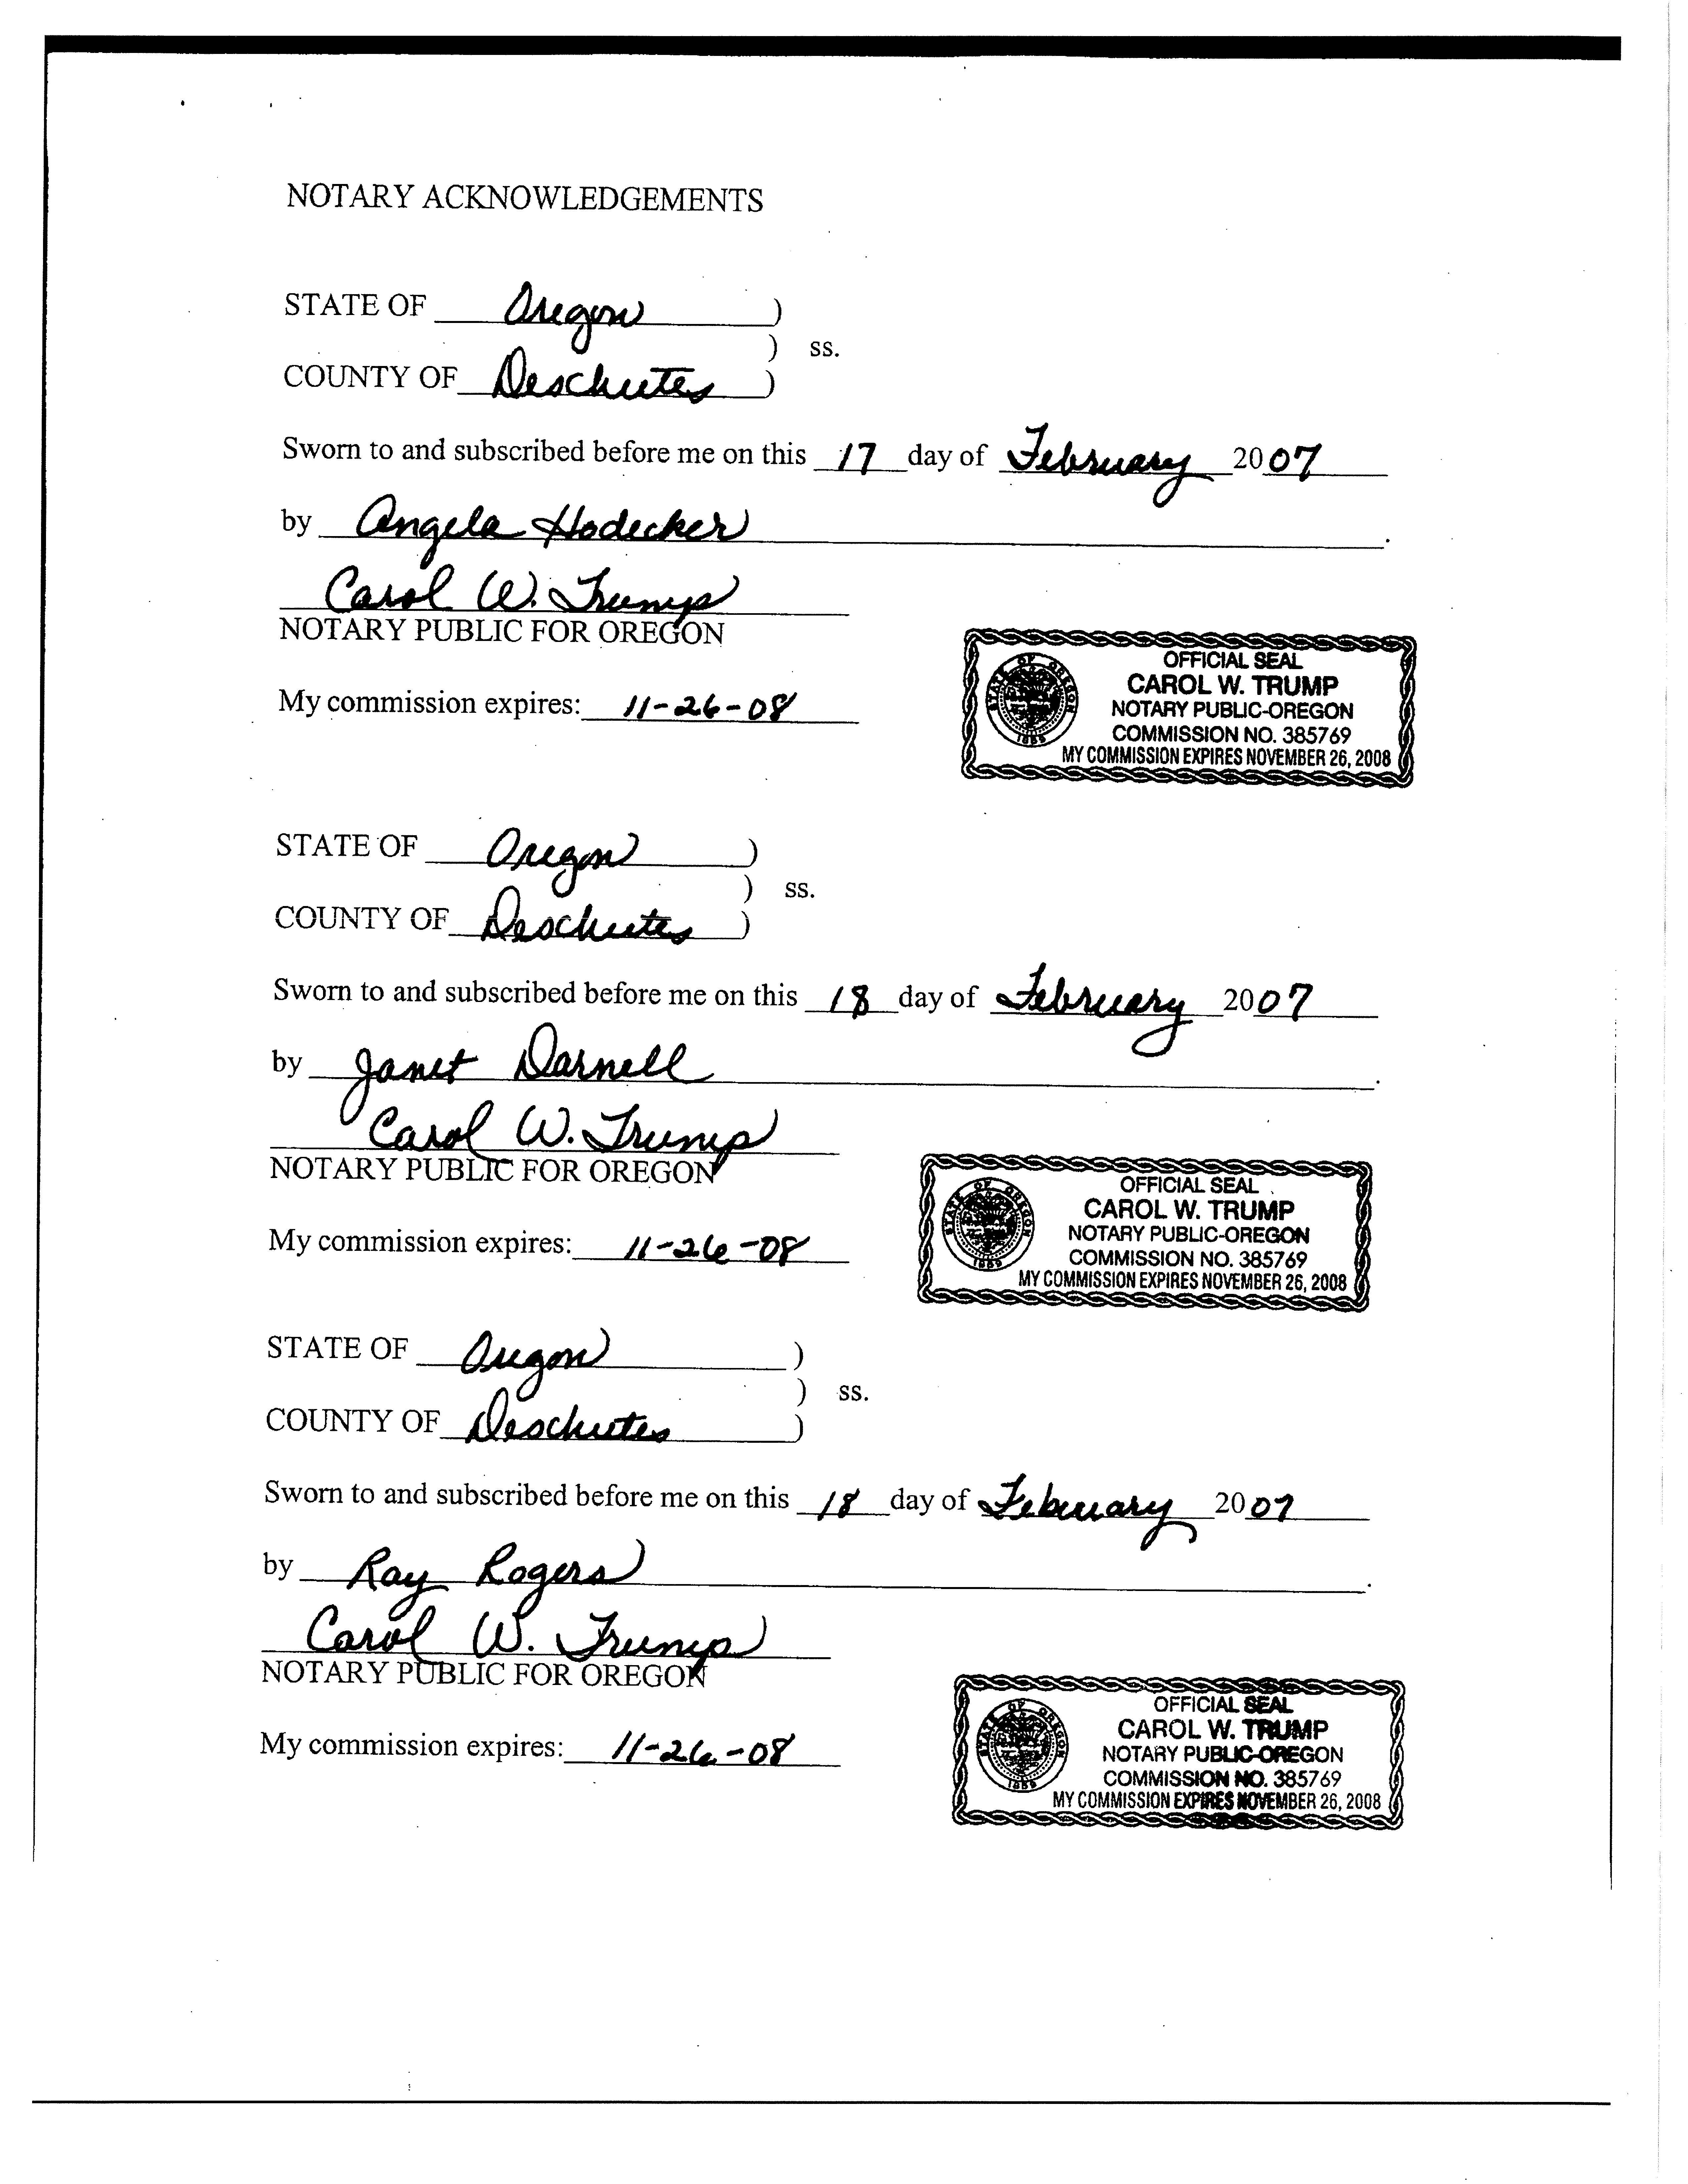 NOTARY ACKNOWLEDGEMENTS
STATE OF Oregon )
) ss.
COUNTY OF Deschutes )
Sworn to and subscribed before me on this 17 day of February 2007
by Angela Hodecker.
Carol W. Trump
NOTARY PUBLIC FOR OREGON
My commission expires: 11-26-08
STATE OF OREGON
1859
OFFICIAL SEAL
CAROL W. TRUMP
NOTARY PUBLIC-OREGON
COMMISSION NO. 385769
MY COMMISSION EXPIRES NOVEMBER 26, 2008
STATE OF Oregon )
) ss.
COUNTY OF Deschutes )
Sworn to and subscribed before me on this 18 day of February 2007
by Janet Darnell.
Carol W. Trump
NOTARY PUBLIC FOR OREGON
My commission expires: 11-26-08
STATE OF OREGON
1859
OFFICIAL SEAL
CAROL W. TRUMP
NOTARY PUBLIC-OREGON
COMMISSION NO. 385769
MY COMMISSION EXPIRES NOVEMBER 26, 2008
STATE OF Oregon )
) ss.
COUNTY OF Deschutes )
Sworn to and subscribed before me on this 18 day of February 2007
by Ray Rogers.
Carol W. Trump
NOTARY PUBLIC FOR OREGON
My commission expires: 11-26-08
STATE OF OREGON
1859
OFFICIAL SEAL
CAROL W. TRUMP
NOTARY PUBLIC-OREGON
COMMISSION NO. 385769
MY COMMISSION EXPIRES NOVEMBER 26, 2008